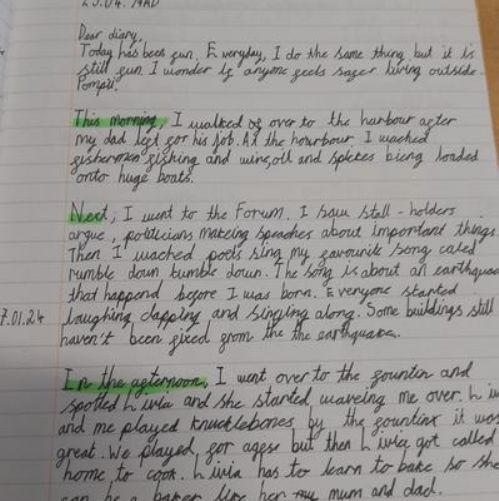 23.04.79AD
Dear diary,
Today has been fun. Everyday, I do the same thing but it is
still fun. I wonder if anyone feels safer living outside
Pompii.
This morning, I walked of over to the harbour after
my dad left for his job. At the hourbour I wached
fishermen fishing and wine, oil and spices being loaded
onto huge boats.
Next, I went to the Forum. I saw stall-holders
argue, politicians makeing speaches about important things.
Then I wached poets sing my favourite song called
rumble down tumble down. The song is about an earthquae
that happend before I was born. Everyone started
7.01.24
laughing clapping and singing along. Some buildings still
haven't been fixed from the the earthquake.
In the afternoon, I went over to the fountin and
spotted Livia and she started waveing me over. Livi
and me played knucklebones by the fountin it was
great. We played for ages but then Livia got called
home to cook. Livia has to learn to bake so she
can be a baker like her my mum and dad.